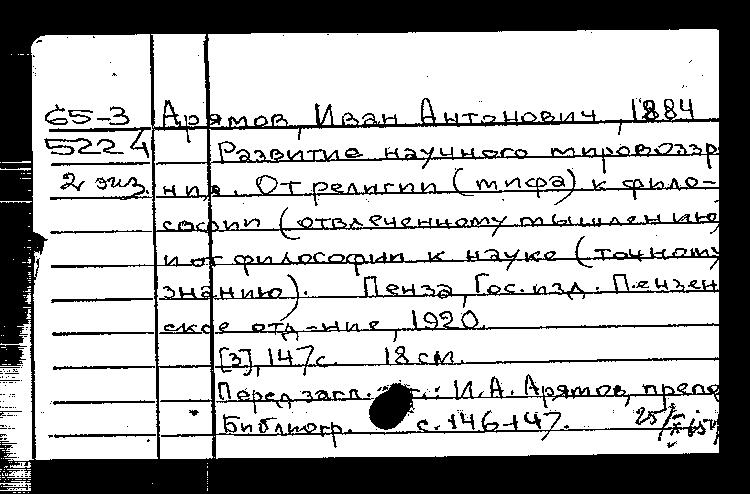 65-3 Арямов, Иван Антонович, 1884
5224 Развитие научного мировоззр
2 экз. ния. От религии (мифа) к фило-
софии (отвлеченному мышлению)
и от философии к науке (точному
знанию). Пенза, Гос. изд. Пензен
ское отд-ние, 1920.
[3], 147 с. 18 см.
Перед загл. : И. А. Арямов, препо
Библиогр. с. 146-147.